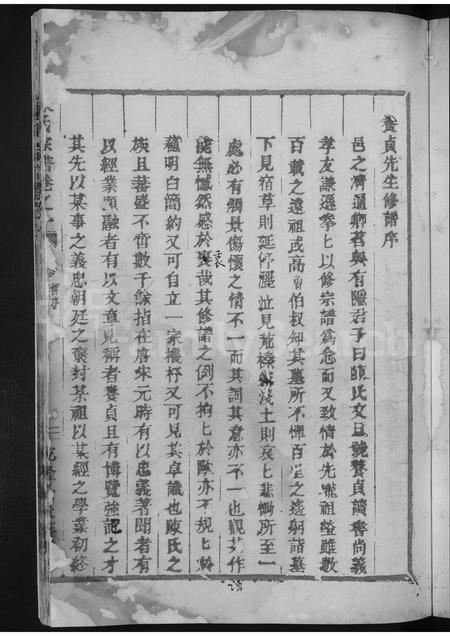 養貞先生修譜序
邑之清溫卿茗與有隱君子曰陳氏文旦號養貞讀書尚義
孝友謙遜拳匕以修宗譜為念而又致情於先壠祖塋雖數
百載之遠祖或高曾伯叔知其墓所不憚百里之遙躬詣墓
下見宿草則延停灑泣見荒榛淺土則哀匕悲慟所至一
處必有觸景傷懷之情不一而其詞其意亦不一也觀其作
能無憾然感於衷哉其修譜之例不拘匕於歐亦不規匕於
蘓明白簡約又可自立一家機杼又可見其卓識也陳氏之
族且蕃盛不啻數千餘指在唐宋元時有以忠義著聞者有
以經業顯融者有以文章見稱者養貞且有博覽強記之才
其先以某事之義忠朝廷之褒封某祖以某經之學業初終
氏宗譜卷之一
譜序